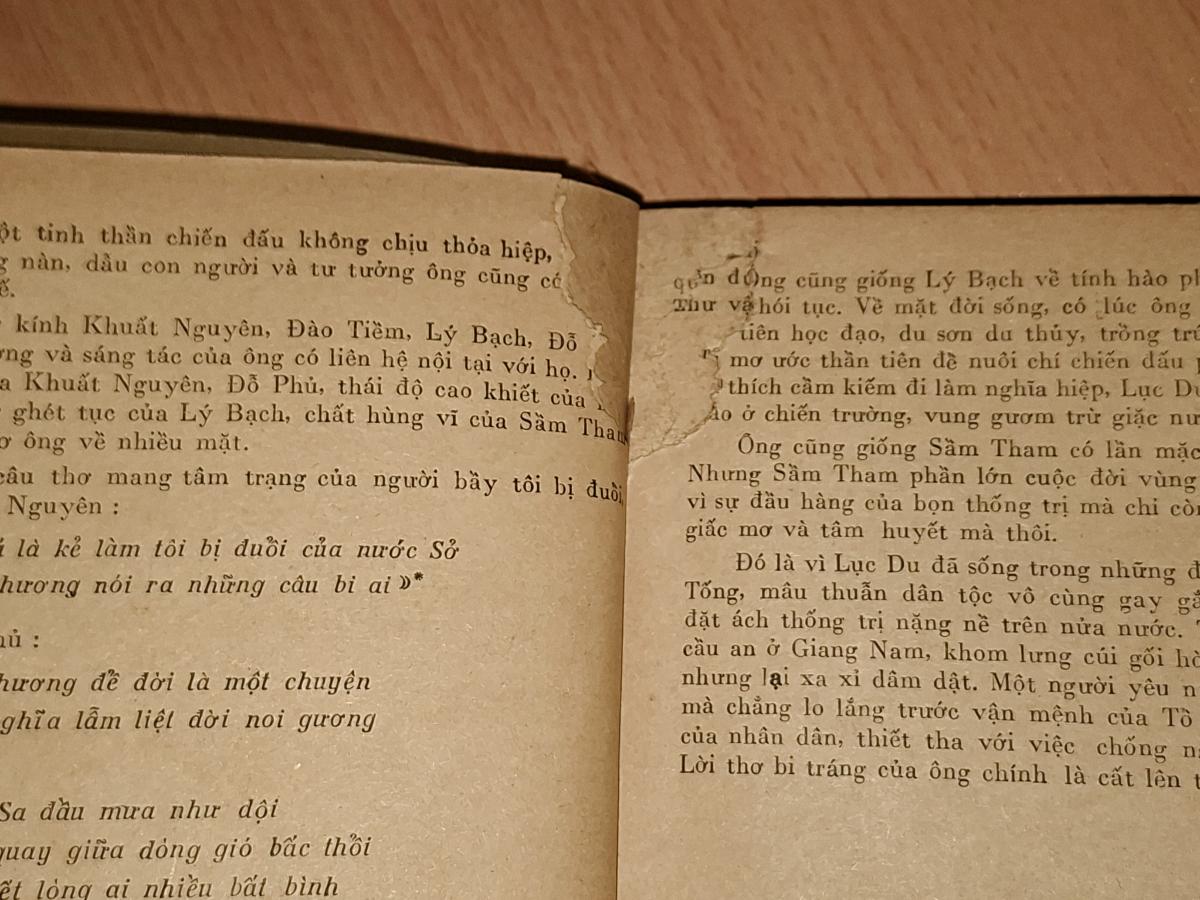 tinh thần chiến đấu không chịu thỏa hiệp,
nàn, dầu con người và tư tưởng ông cũng có
kính Khuất Nguyên, Đào Tiềm, Lý Bạch, Đỗ
và sáng tác của ông có liên hệ nội tại với họ.
Khuất Nguyên, Đỗ Phủ, thái độ cao khiết của
ghét tục của Lý Bạch, chất hùng vĩ của Sầm Tham
ông về nhiều mặt.
câu thơ mang tâm trạng của người bầy tôi bị đuổi,
Nguyên :
là kẻ làm tôi bị đuổi của nước Sở
nói ra những câu bi ai »*
:
để đời là một chuyện
lẫm liệt đời noi gương
Sa đầu mưa như dội
quay giữa dòng gió bấc thổi
lòng ai nhiều bất bình
cũng giống Lý Bạch về tính hào
hói tục. Về mặt đời sống, có lúc ông
tiên học đạo, du sơn du thủy, trồng
mơ ước thần tiên để nuôi chí chiến đấu
thích cầm kiếm đi làm nghĩa hiệp, Lục Du
ở chiến trường, vung gươm trừ giặc
Ông cũng giống Sầm Tham có lần mặc
Nhưng Sầm Tham phần lớn cuộc đời vùng
vì sự đầu hàng của bọn thống trị mà chỉ còn
giấc mơ và tâm huyết mà thôi.
Đó là vì Lục Du đã sống trong những
Tống, mâu thuẫn dân tộc vô cùng gay
đặt ách thống trị nặng nề trên nửa nước.
cầu an ở Giang Nam, khom lưng cúi gối
nhưng lại xa xỉ dâm dật. Một người yêu
mà chẳng lo lắng trước vận mệnh của Tổ
của nhân dân, thiết tha với việc chống
Lời thơ bi tráng của ông chính là cất lên